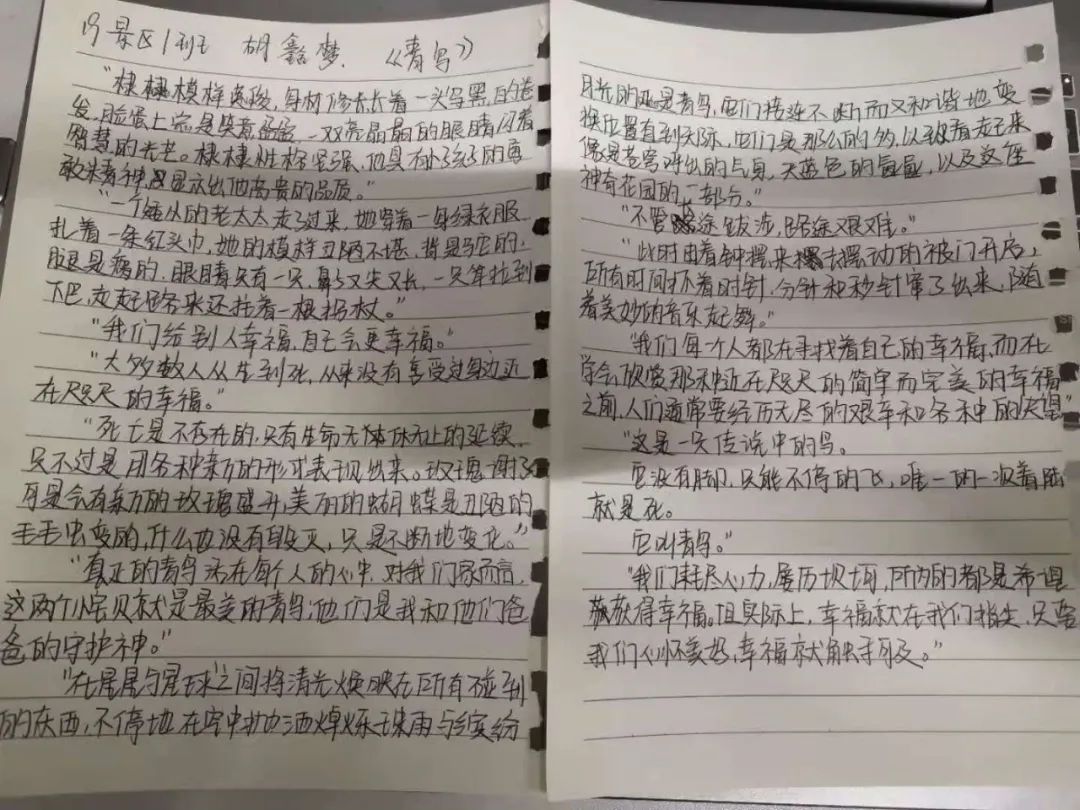 19景区1班 胡鑫梦.《青鸟》
"棣棣模样英俊,身材修长长着一头乌黑的卷
发,脸蛋上总是笑意盈盈一双亮晶晶的眼睛闪着
智慧的光芒。棣棣性格坚强,他具有小孩子的勇
敢米青神,显示出他高贵的品质。"
"一个矮小的老太太走了过来,她穿着一身绿衣服
扎着一条红头巾,她的模样丑陋不堪,背是驼的,
腿是瘸的,眼睛只有一只,鼻子又尖又长,一只耷拉到
下巴,走起路来还拄着一根拐杖。"
"我们给别人幸福,自己会更幸福。"
"大多数人从生到死,从来没有享受过身边近
在咫尺的幸福。"
"死亡是不存在的,只有生命无休无止的延续,
只不过是用各种新的形式表现出来。玫瑰谢了
可是会有新的玫瑰盛开,美丽的蝴蝶是丑陋的
毛毛虫变的,什么也没有毁灭,只是不断地变化。"
"真正的青鸟活在每个人的心中,对我们家而言,
这两个小宝贝就是最美的青鸟;他们是我和他们爸
爸的守护神。"
"在星星与星球之间将清光焕映在所有碰到
的东西,不停地在空中抛洒焯烁珠雨与缤纷
月光的正是青鸟,它们接连不断而又和谐地变
换位置直到天际,它们是那么的多,以致看起来
像是苍穹呼出的气息,天蓝色的星星,以及这座
神奇花园的一部分。"
"不管途跋涉,路途艰难。"
"此时由着钟摆来摆去摆动的被门开启,
所有时间怀着时针,分针和秒针窜了出来,随
着美妙的音乐起舞。"
"我们每个人都在寻找着自己的幸福,而在
学会欣赏那种近在咫尺的简单而完美的幸福
之前,人们通常要经历无尽的艰辛和各种的失望"
"这是一只传说中的鸟。
它没有脚,只能不停的飞,唯一的一次着陆
就是死。
它叫青鸟。"
"我们耗尽心力,屡历坎坷,所为的都是希望
获得幸福。但实际上,幸福就在我们指尖,只要
我们心怀美好,幸福就触手可及。"